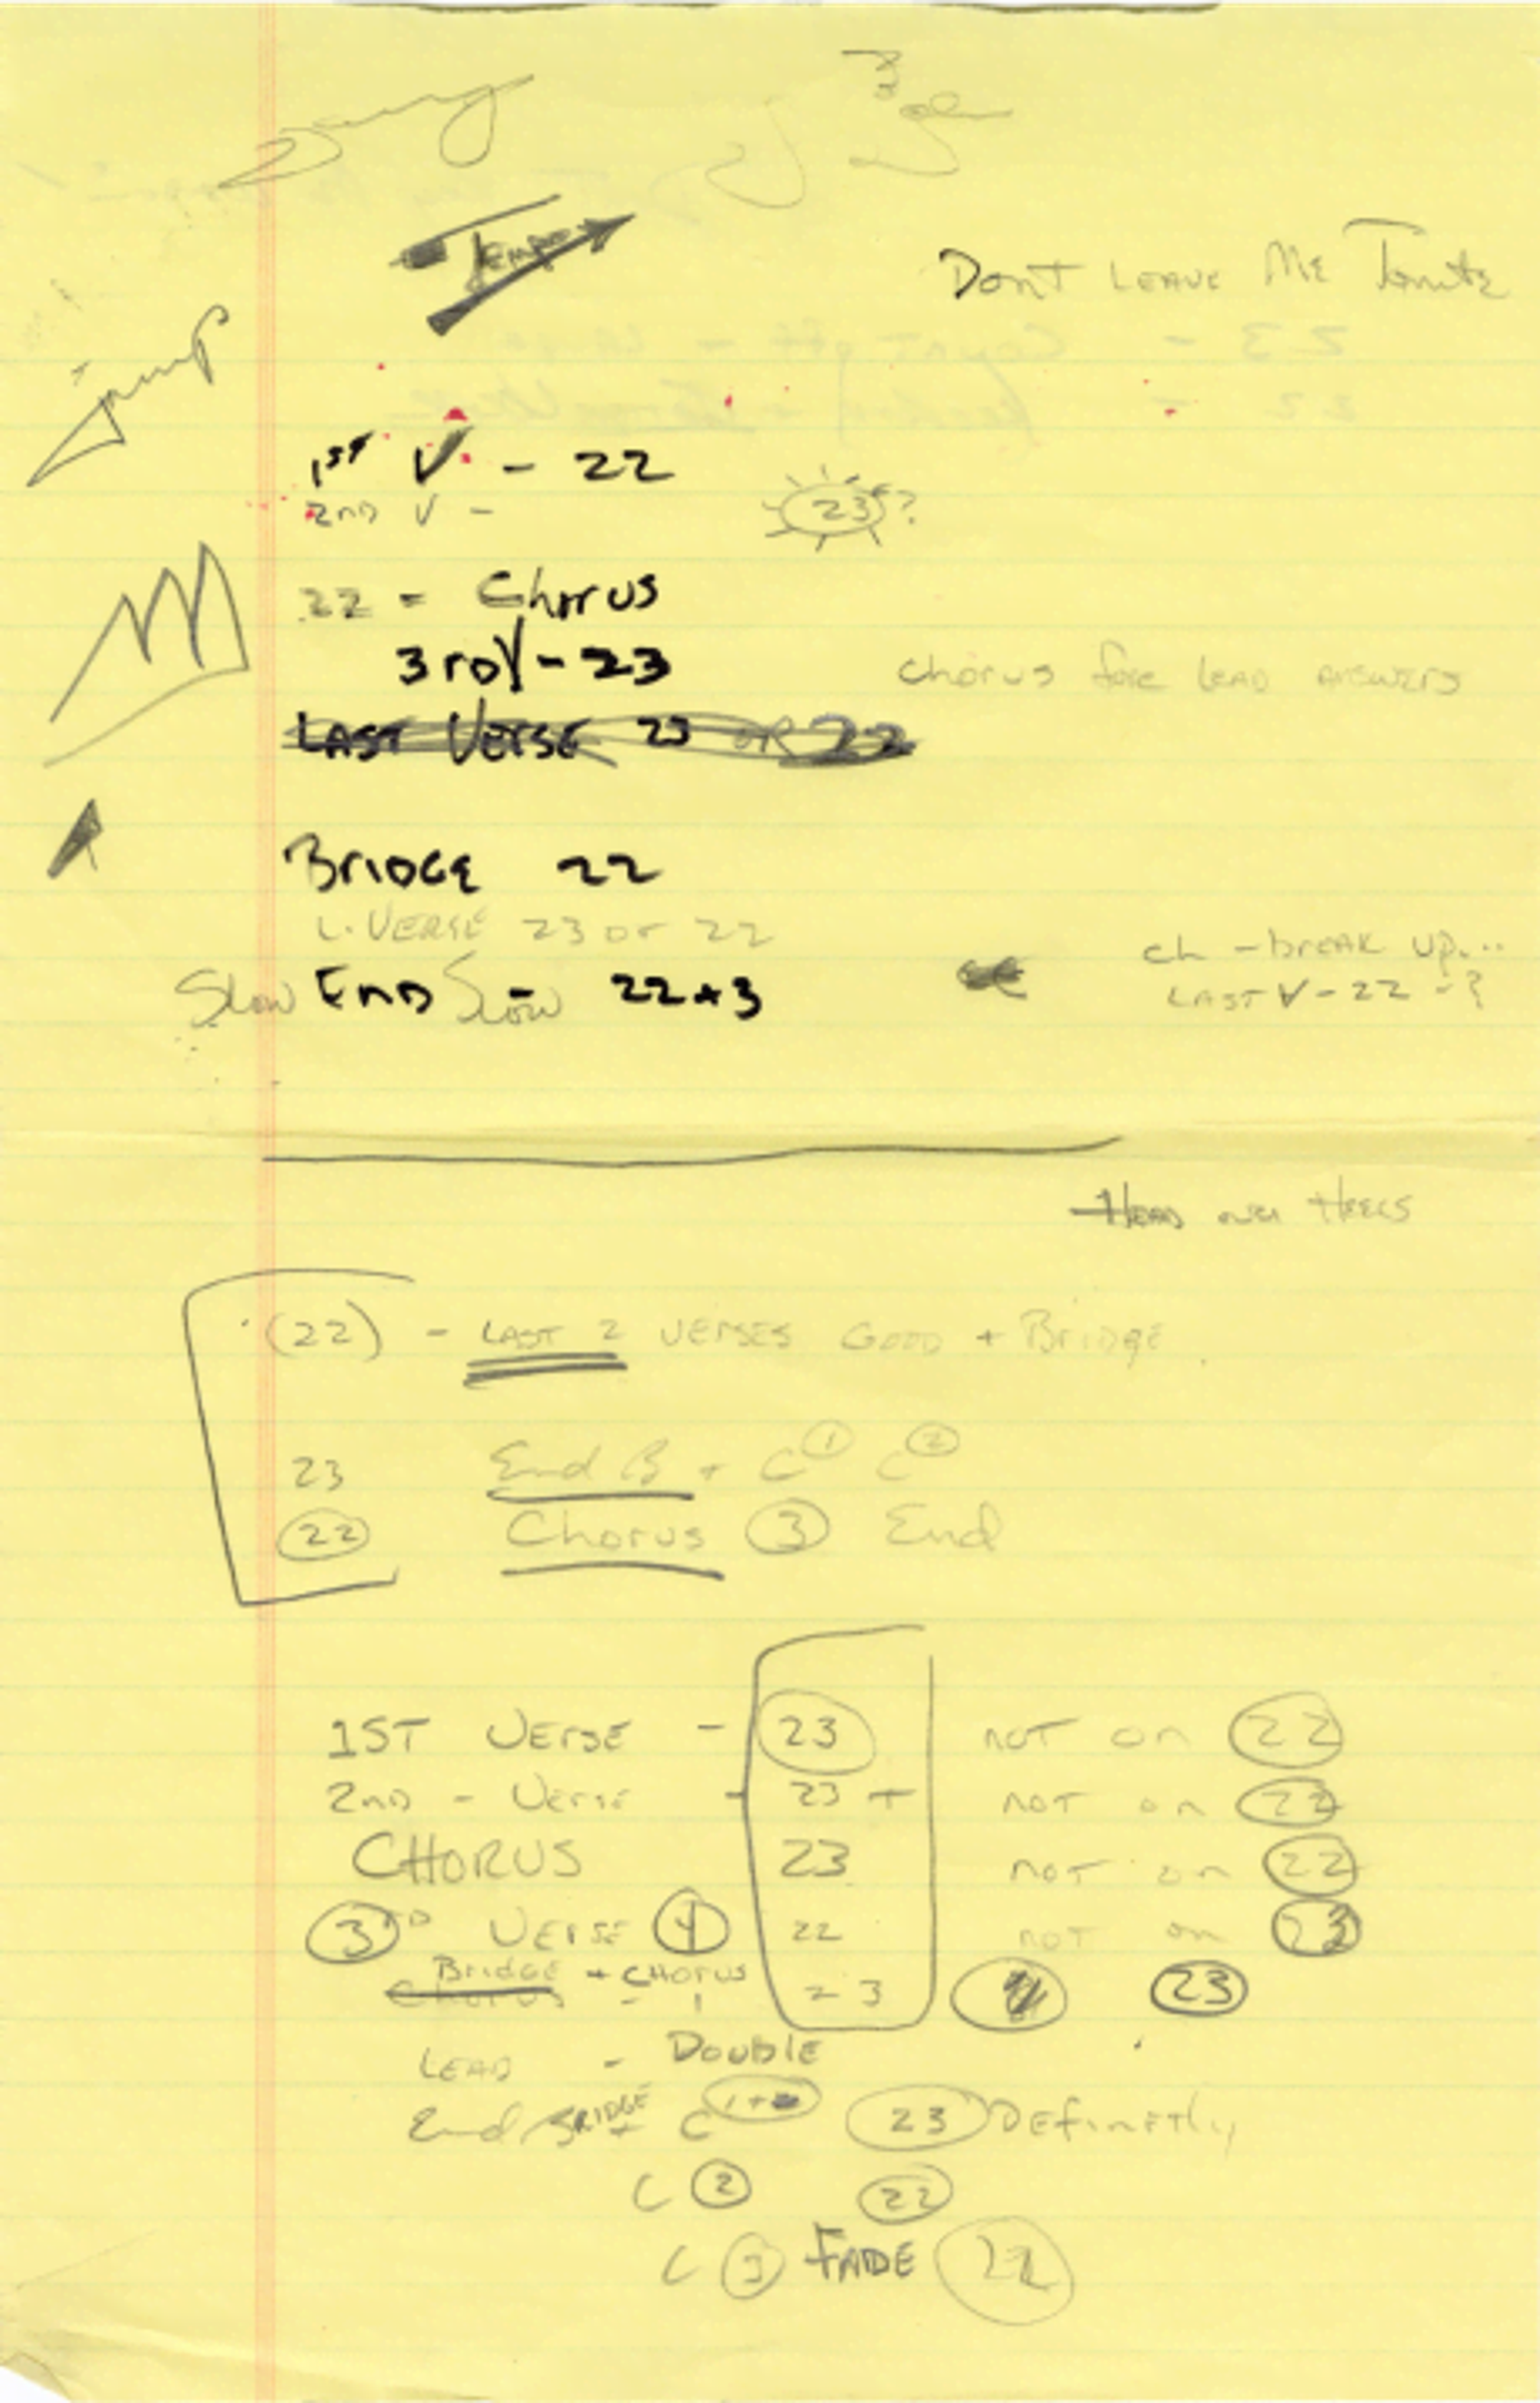 Tempo
DONT LEAVE ME Tonite
jump
1ST V - 22
2ND V -
23?
22 - Chorus
3rd V - 23
chorus fore LEAD ANSWERS
LAST VERSE 23 OR 22
BRIDGE 22
L. VERSE 23 or 22
Slow END Slow - 22+3
ch - break up...
LAST V - 22 - ?
HEAD over HEELS
(22) - LAST 2 VERSES GOOD + Bridge
23 End B + C 1 C 2
22 Chorus 3 End
1ST VERSE - 23 NOT on 22
2ND - VERSE - 23 + NOT on 22
CHORUS 23 NOT on 22
3RD VERSE 4 22 NOT on 23
Bridge + CHORUS
Chorus - 1 23 23
LEAD - DOUBLE
End BRIDGE + C 1+2 23 DEFINETLY
C 2 22
C 3 FADE 22